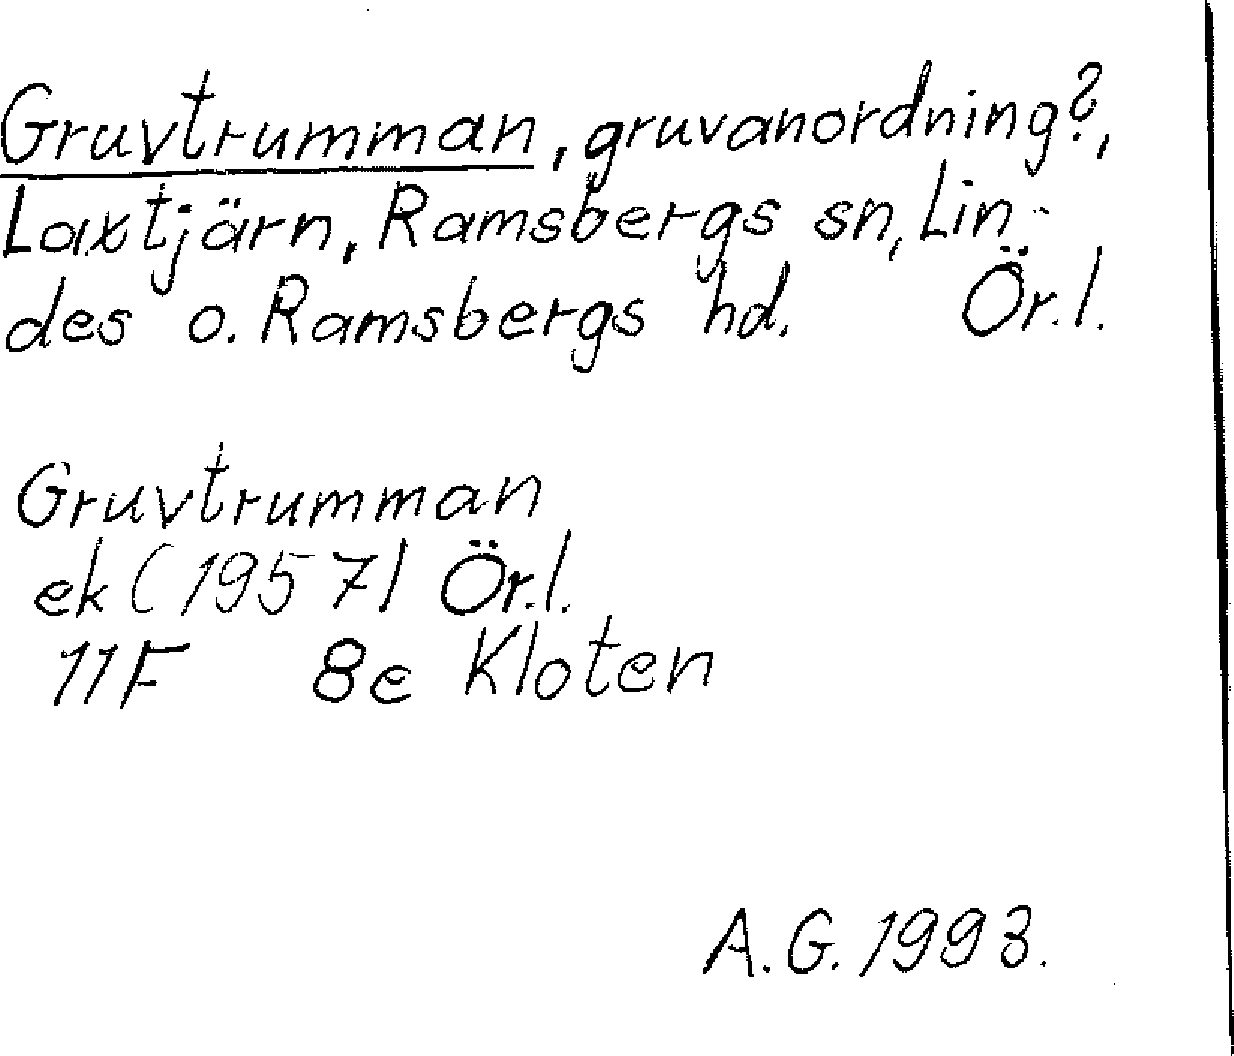 Gruvtrumman, gruvanordning?,
Laxtjärn, Ramsbergs sn, Lin-
des o. Ramsbergs hd. Ör.l.
Gruvtrumman
ek (1957) Ör.l.
11F 8e Kloten
A.G. 1993.